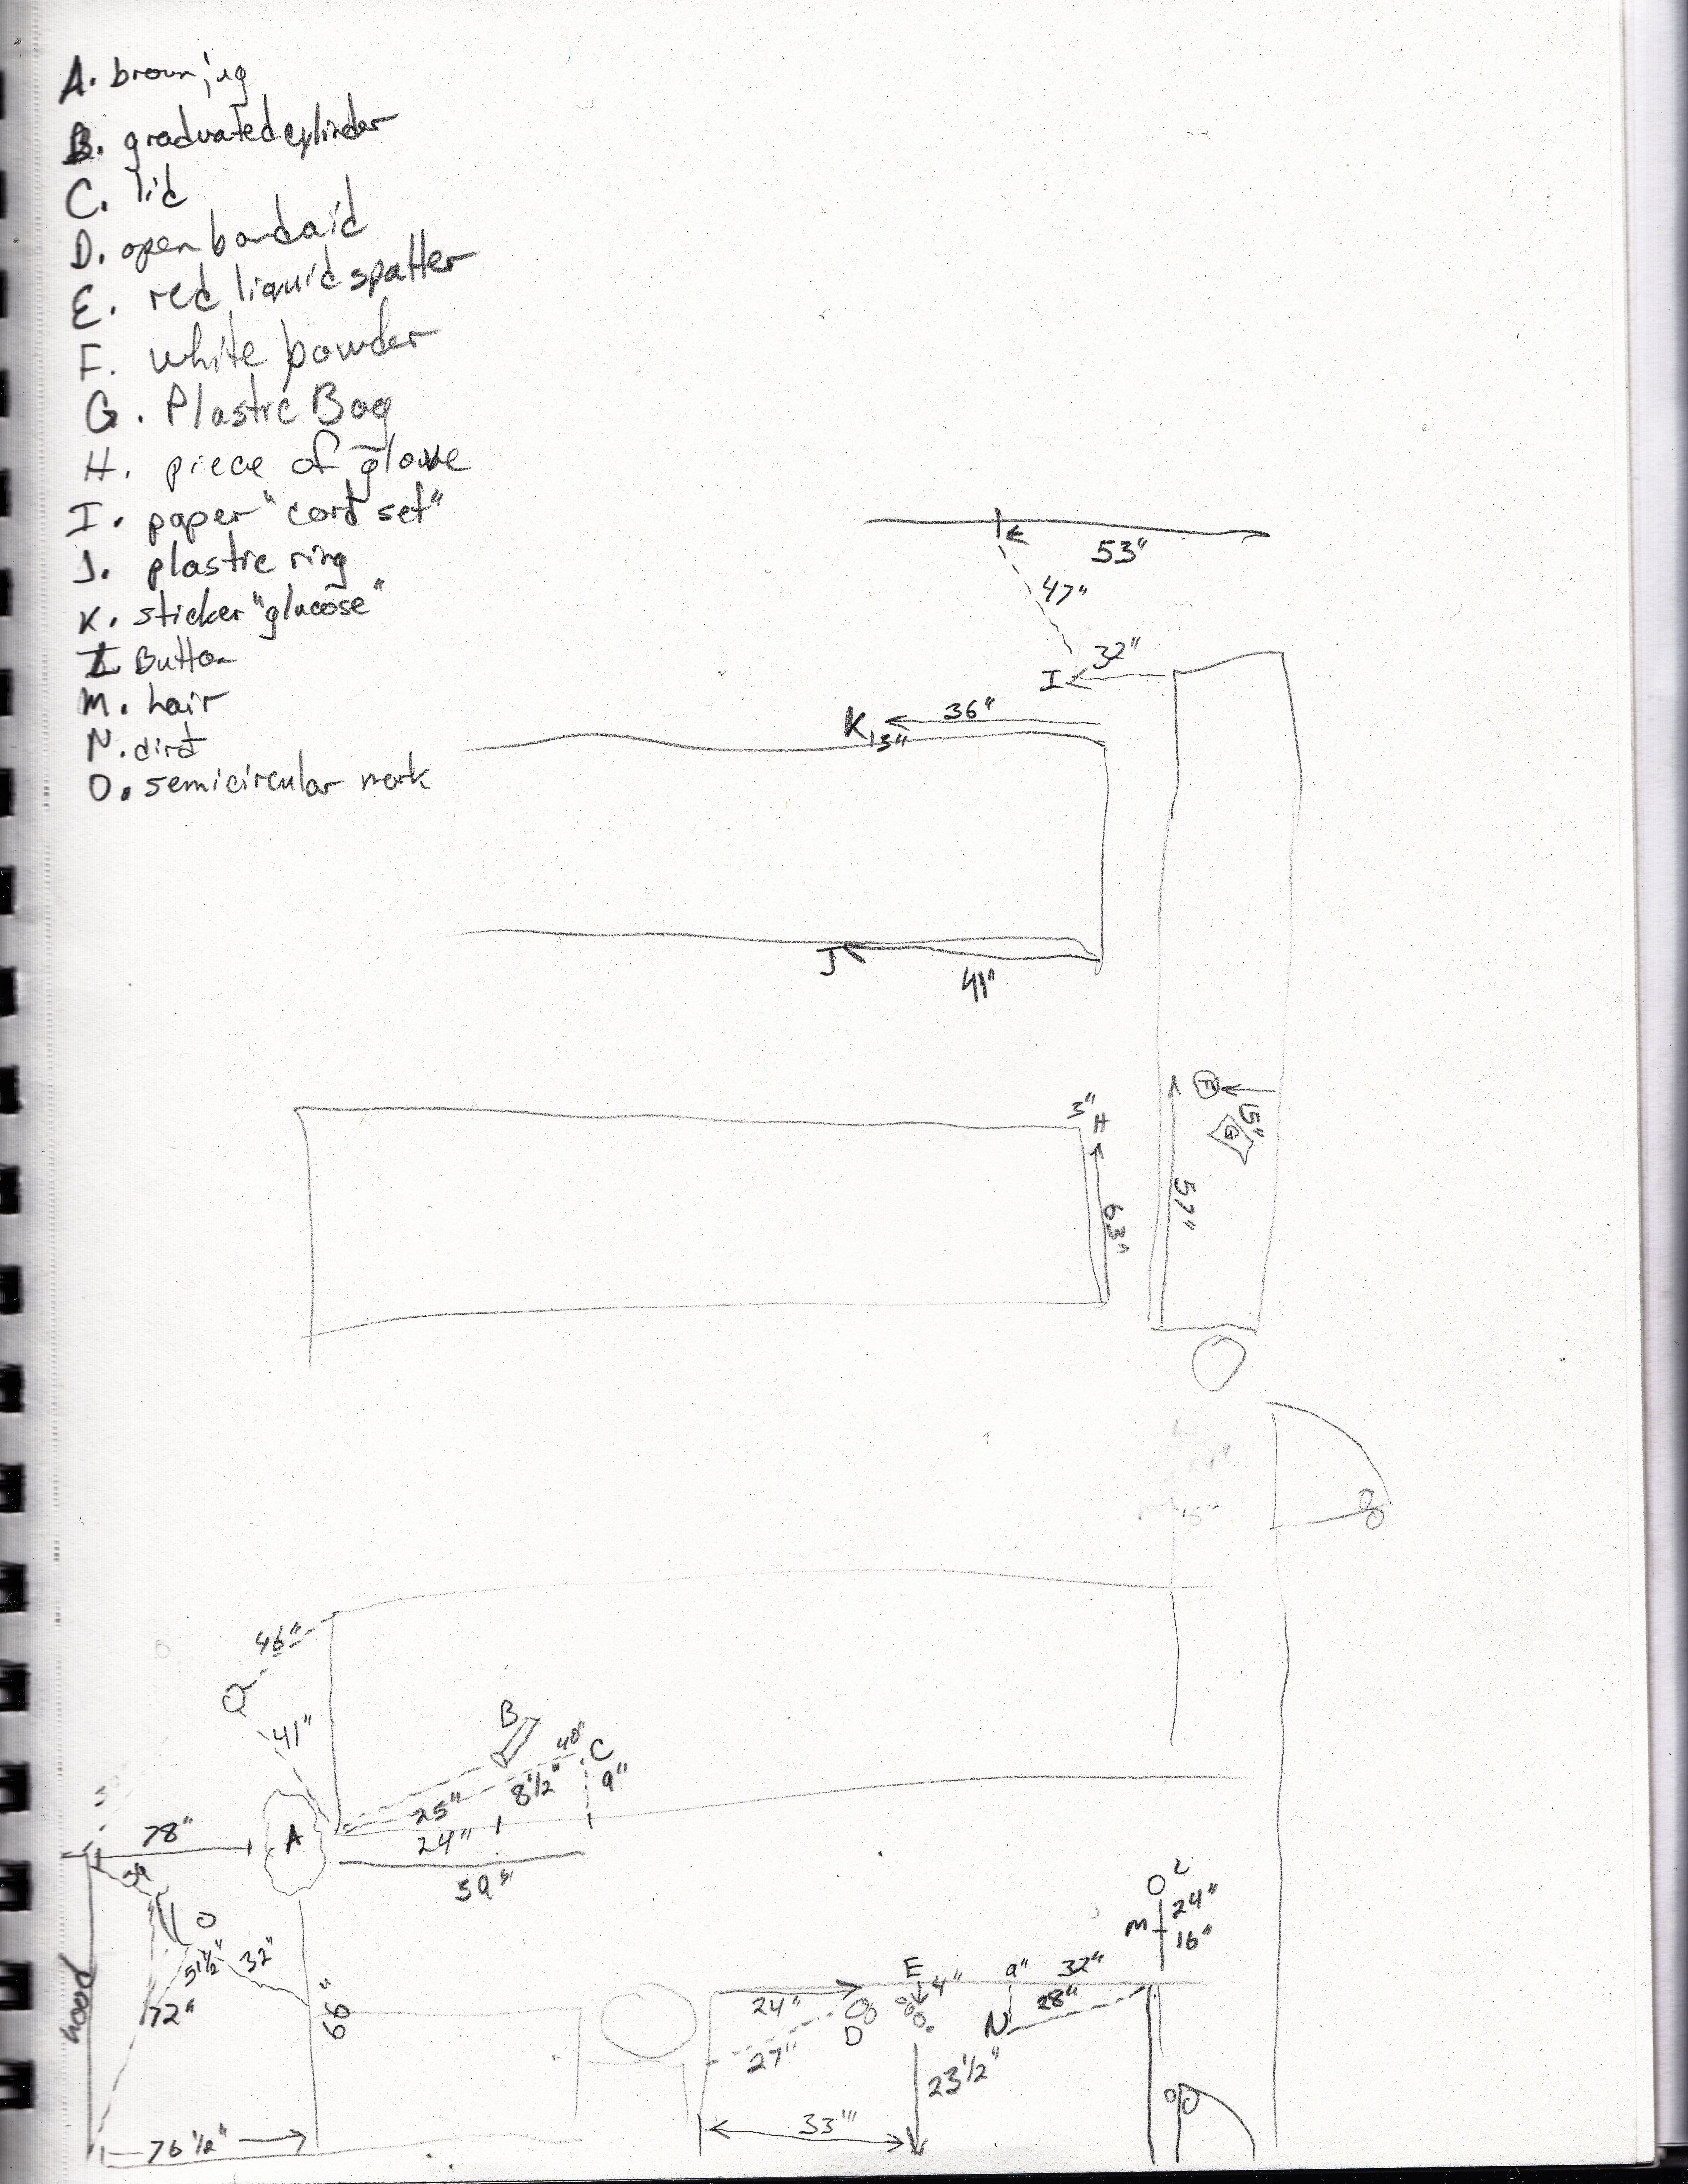 A. brown jug
B. graduated cylinder
C. lid
D. open bandaid
E. red liquid spatter
F. white powder
G. Plastic Bag
H. piece of glove
I. paper "cord set"
J. plastic ring
K. sticker "glucose"
L. Button
M. hair
N. dirt
O. semicircular mark
53"
47"
32"
I
36"
K 13"
J
41"
F
15"
G
3"
H
57"
63"
46"
41"
B
40"
C
8 1/2"
9"
25"
24"
59"
78"
A
O
5 1/2"
32"
72"
66"
hood
76 1/2"
L
24"
M
16"
E
4"
9"
32"
24"
D
N
28"
27"
23 1/2"
33"